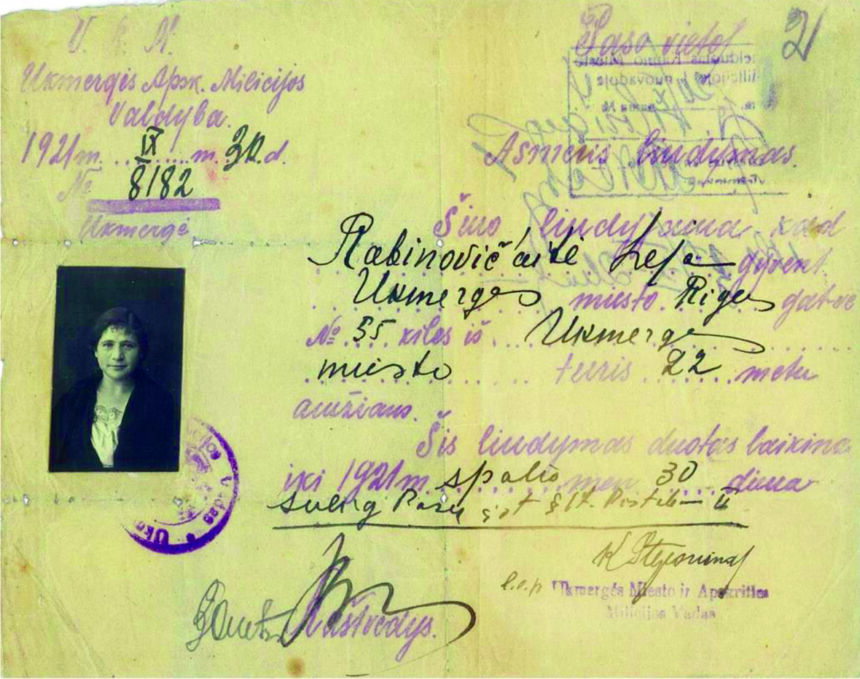 V. R. M.
Ukmergės Apsk. Milicijos
Valdyba.
1921 m. IX m. 30 d.
№ 8182
Ukmergė
Paso vietoj
21
Asmens liudymas.
Šiuo liudyjama, kad
Rabinovičaitė gyven.
Ukmergės miesto Rigos gatvė
№ 55 kilęs iš Ukmergės
miesto turis 22 metu
amžiaus.
Šis liudymas duotas laikinai
iki 1921 m. spalio mėn 30 dienai
sulig
Ukmergės Miesto ir Apskrities
Milicijos Vadas
Raštvedys.